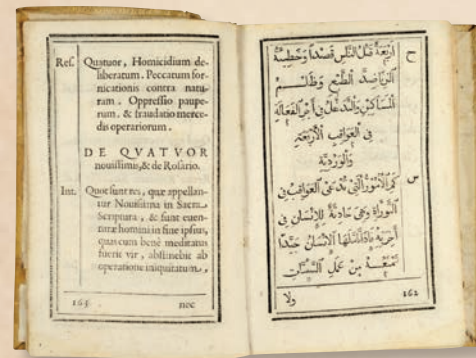 Res. Quatuor, Homicidium de-
liberatum. Peccatum for-
nicationis contra natu-
ram. Oppressio paupe-
rum. & fraudatio merce-
dis operariorum.
DE QVATVOR
nouissimis, & de Rosario.
Int. Quot sunt res, quæ appellan-
tur Nouissima in Sacra
Scriptura, & sunt euen-
turæ homini in fine ipsius,
quas cum benè meditatus
fuerit vir, abstinebit ab
operatione iniquitatum,
163
nec
ح
أربعة قتل الناس قصدًا وخطية
الزنا ضد الطبع وظلم
المساكين
في العواقب الأربعة
والوردية
س
كم الأمور التي تدعى العواقب في
التوراة وهي حادثة للإنسان في
آخرته فإذا تأملها الإنسان جيدًا
تمنعه من عمل السيئات
ولا
162